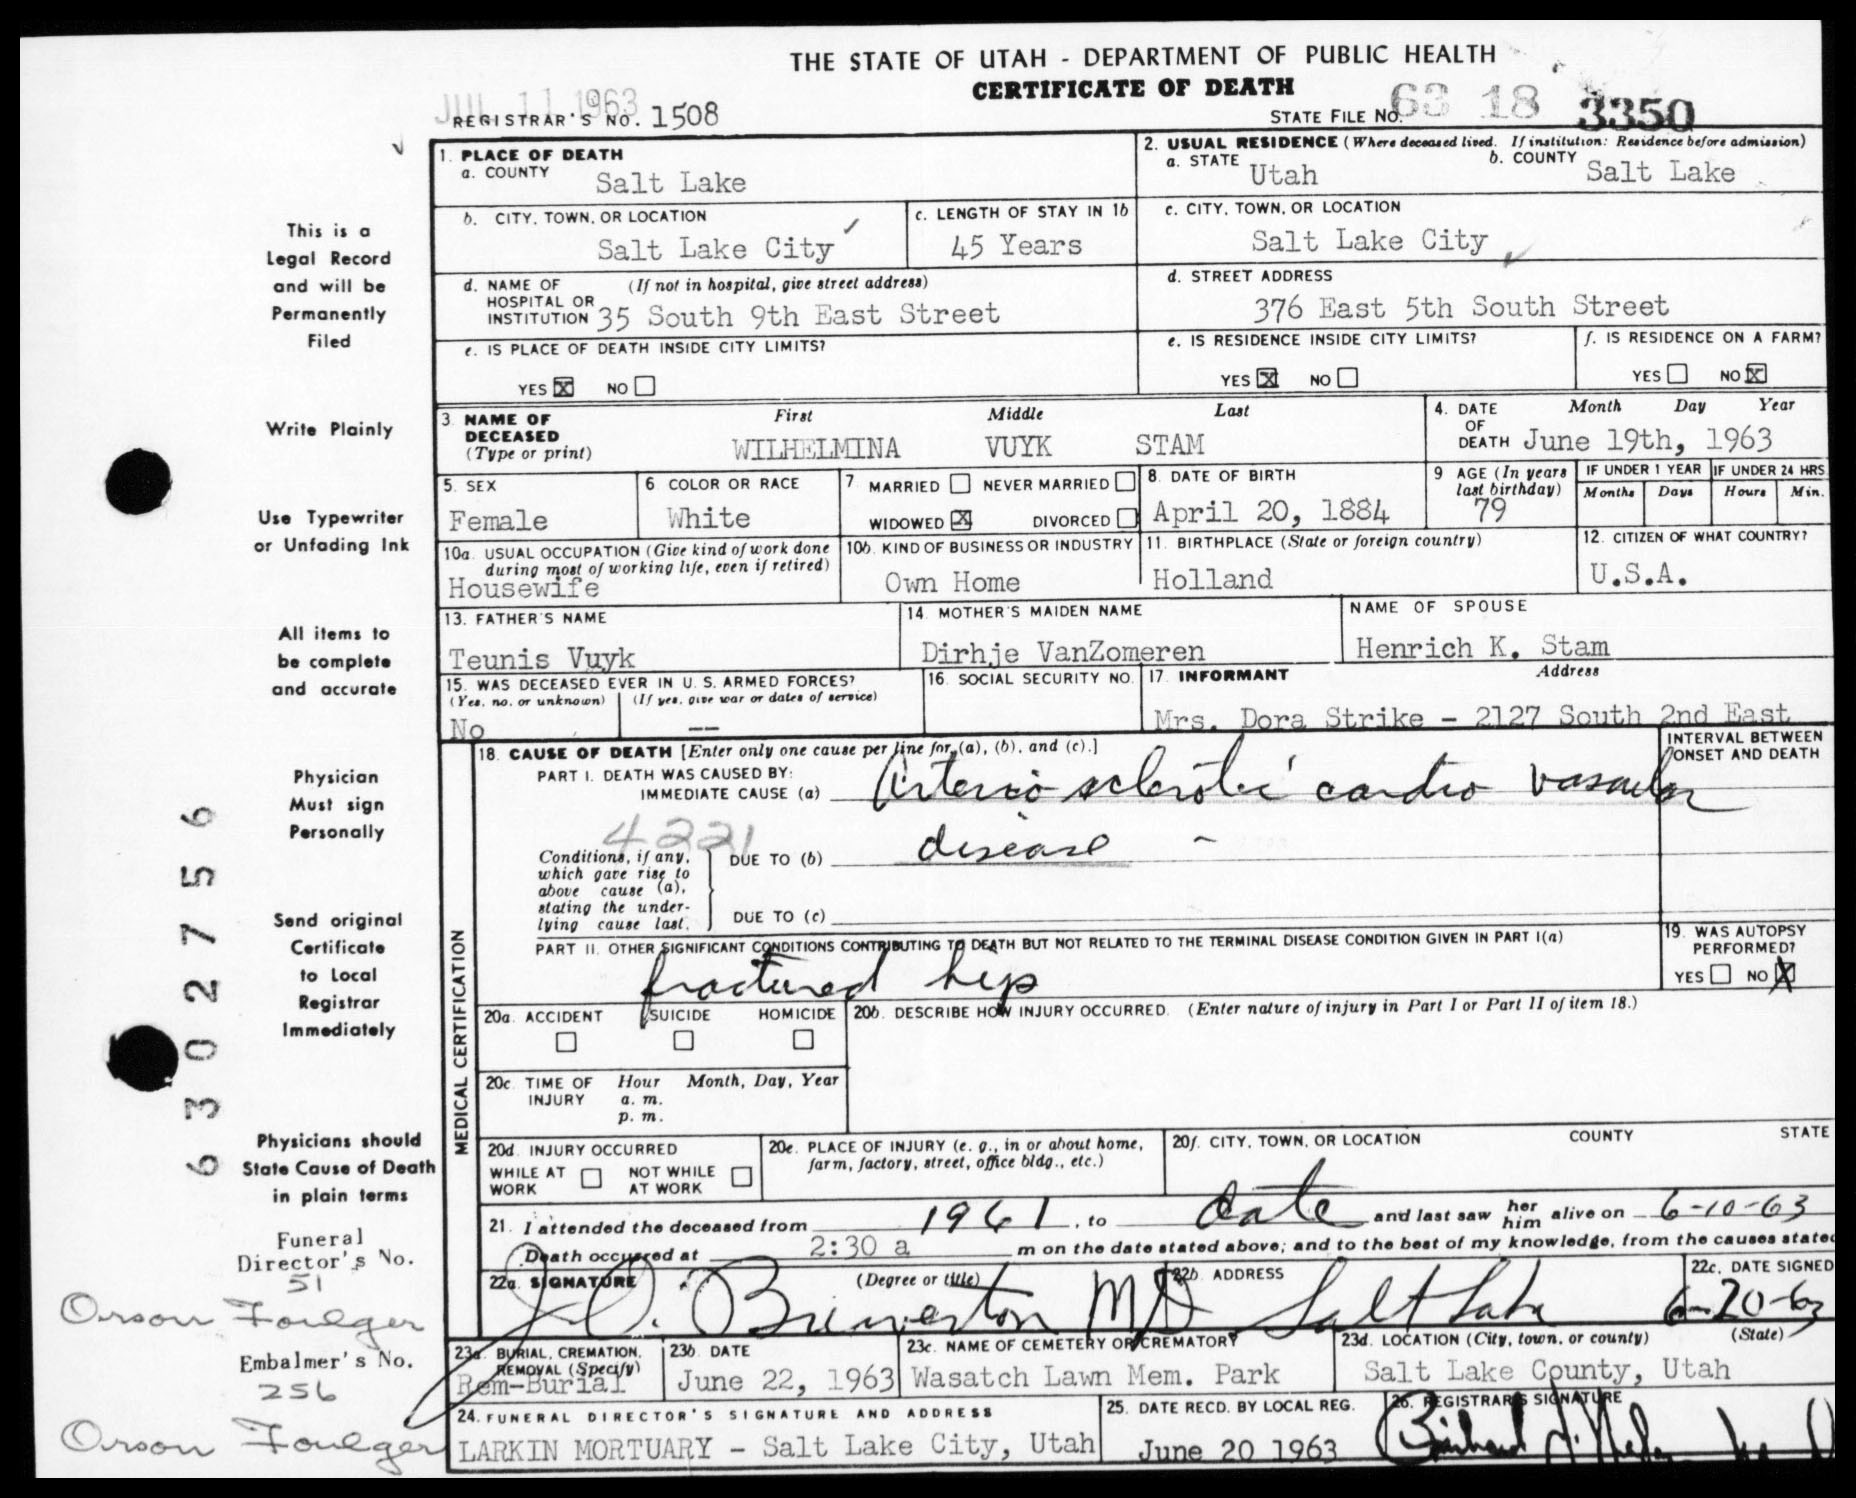 THE STATE OF UTAH - DEPARTMENT OF PUBLIC HEALTH
CERTIFICATE OF DEATH
JUL 11 1963
REGISTRAR'S NO. 1508
STATE FILE NO. 63 18 3350
1. PLACE OF DEATH
a. COUNTY Salt Lake
2. USUAL RESIDENCE (Where deceased lived. If institution: Residence before admission)
a. STATE Utah b. COUNTY Salt Lake
b. CITY, TOWN, OR LOCATION Salt Lake City
c. LENGTH OF STAY IN 1b 45 Years
c. CITY, TOWN, OR LOCATION Salt Lake City
d. NAME OF HOSPITAL OR INSTITUTION (If not in hospital, give street address) 35 South 9th East Street
d. STREET ADDRESS 376 East 5th South Street
e. IS PLACE OF DEATH INSIDE CITY LIMITS?
YES X NO
e. IS RESIDENCE INSIDE CITY LIMITS?
YES X NO
f. IS RESIDENCE ON A FARM?
YES NO X
3. NAME OF DECEASED (Type or print)
First Middle Last
WILHELMINA VUYK STAM
4. DATE OF DEATH Month Day Year
June 19th, 1963
5. SEX Female
6 COLOR OR RACE White
7 MARRIED NEVER MARRIED
WIDOWED X DIVORCED
8. DATE OF BIRTH April 20, 1884
9 AGE (In years last birthday) 79
IF UNDER 1 YEAR Months Days
IF UNDER 24 HRS Hours Min.
10a. USUAL OCCUPATION (Give kind of work done during most of working life, even if retired) Housewife
10b. KIND OF BUSINESS OR INDUSTRY Own Home
11. BIRTHPLACE (State or foreign country) Holland
12. CITIZEN OF WHAT COUNTRY? U.S.A.
13. FATHER'S NAME Teunis Vuyk
14. MOTHER'S MAIDEN NAME Dirhje VanZomeren
NAME OF SPOUSE Henrich K. Stam
15. WAS DECEASED EVER IN U.S. ARMED FORCES?
(Yes, no, or unknown) (If yes, give war or dates of service)
No --
16. SOCIAL SECURITY NO.
17. INFORMANT Address
Mrs. Dora Strike - 2127 South 2nd East
MEDICAL CERTIFICATION
18. CAUSE OF DEATH [Enter only one cause per line for (a), (b), and (c).]
INTERVAL BETWEEN ONSET AND DEATH
PART I. DEATH WAS CAUSED BY:
IMMEDIATE CAUSE (a) Arterio sclerotic cardio vascular
4221
Conditions, if any, which gave rise to above cause (a), stating the underlying cause last.
DUE TO (b) disease -
DUE TO (c)
PART II. OTHER SIGNIFICANT CONDITIONS CONTRIBUTING TO DEATH BUT NOT RELATED TO THE TERMINAL DISEASE CONDITION GIVEN IN PART I(a)
fractured hip
19. WAS AUTOPSY PERFORMED?
YES NO X
20a. ACCIDENT SUICIDE HOMICIDE
20b. DESCRIBE HOW INJURY OCCURRED. (Enter nature of injury in Part I or Part II of item 18.)
20c. TIME OF INJURY Hour Month, Day, Year
a. m.
p. m.
20d. INJURY OCCURRED
WHILE AT WORK NOT WHILE AT WORK
20e. PLACE OF INJURY (e. g., in or about home, farm, factory, street, office bldg., etc.)
20f. CITY, TOWN, OR LOCATION COUNTY STATE
21. I attended the deceased from 1961, to date and last saw her him alive on 6-10-63
Death occurred at 2:30 a m on the date stated above; and to the best of my knowledge, from the causes stated
22a. SIGNATURE (Degree or title) MD
22b. ADDRESS Salt Lake
22c. DATE SIGNED 6-20-63
23a. BURIAL, CREMATION, REMOVAL (Specify) Rem-Burial
23b. DATE June 22, 1963
23c. NAME OF CEMETERY OR CREMATORY Wasatch Lawn Mem. Park
23d. LOCATION (City, town, or county) (State)
Salt Lake County, Utah
24. FUNERAL DIRECTOR'S SIGNATURE AND ADDRESS
LARKIN MORTUARY - Salt Lake City, Utah
25. DATE RECD. BY LOCAL REG. June 20 1963
26. REGISTRAR'S SIGNATURE
This is a
Legal Record
and will be
Permanently
Filed
Write Plainly
Use Typewriter
or Unfading Ink
All items to
be complete
and accurate
Physician
Must sign
Personally
Send original
Certificate
to Local
Registrar
Immediately
Physicians should
State Cause of Death
in plain terms
Funeral
Director's No.
51
Orson Foulger
Embalmer's No.
256
Orson Foulger
6302756